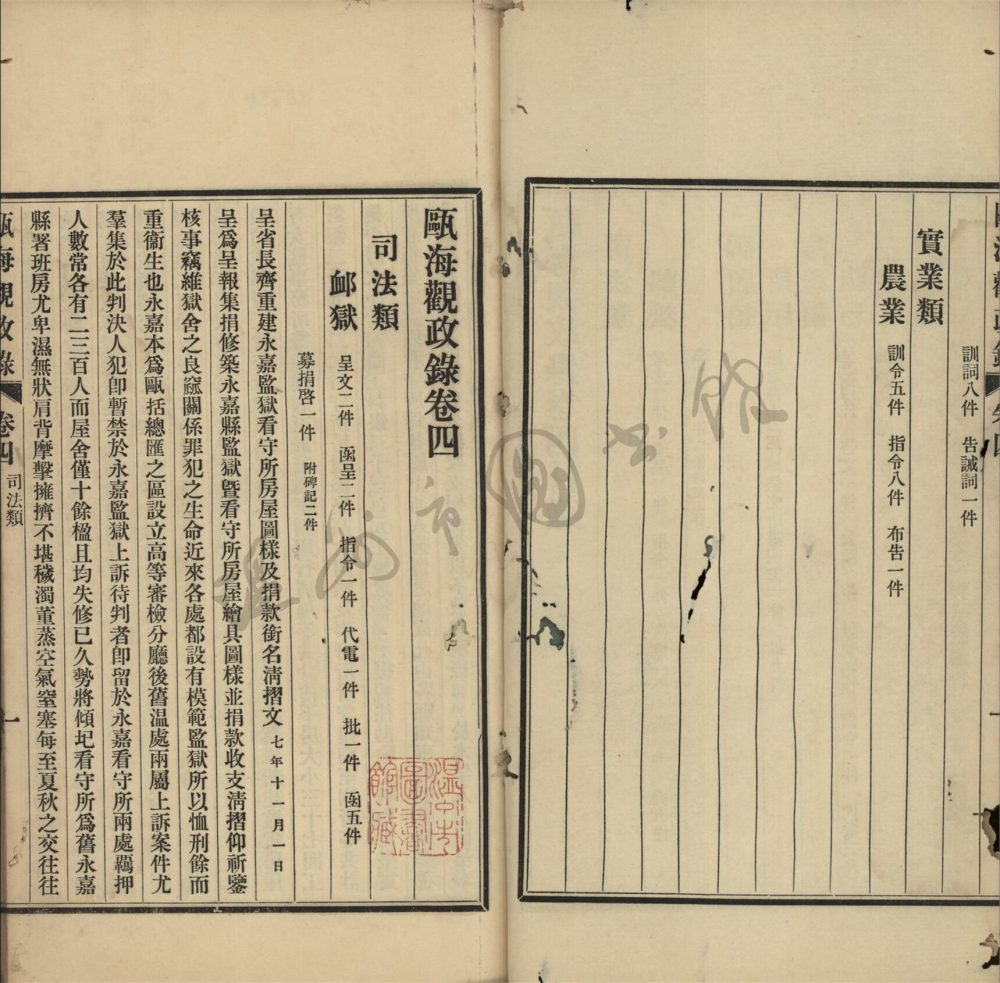 訓詞八件　告誡詞一件
實業類
農業　訓令五件　指令八件　布告一件
甌海觀政錄卷四
司法類
䘏獄　呈文二件　函呈二件　指令一件　代電一件　批一件　函五件
募捐啓一件　附碑記二件
呈省長齊重建永嘉監獄看守所房屋圖樣及捐款銜名淸摺文　七年十一月一日
呈爲呈報集捐修築永嘉縣監獄曁看守所房屋繪具圖樣並捐款收支淸摺仰祈鑒
核事竊維獄舍之良窳關係罪犯之生命近來各處都設有模範監獄所以恤刑餘而
重衞生也永嘉本爲甌括總匯之區設立高等審檢分廳後舊温處兩屬上訴案件尤
羣集於此判決人犯卽暫禁於永嘉監獄上訴待判者卽留於永嘉看守所兩處羈押
人數常各有二三百人而屋舍僅十餘楹且均失修已久勢將傾圮看守所爲舊永嘉
縣署班房尤卑濕無狀肩背摩擊擁擠不堪穢濁薰蒸空氣窒塞每至夏秋之交往往
甌海觀政錄　卷四　司法類　一
温州市圖書館藏
温州市圖書館